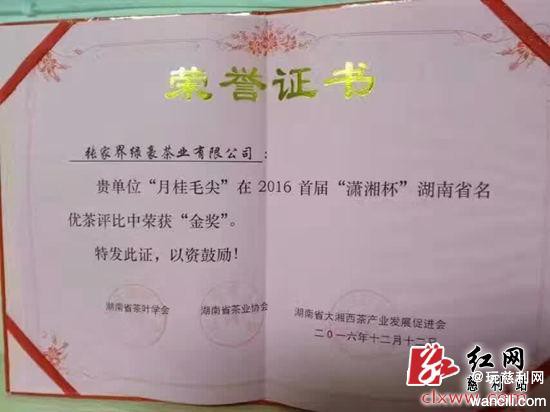 荣誉证书
张家界绿豪茶业有限公司：
贵单位“月桂毛尖”在2016首届“潇湘杯”湖南省名
优茶评比中荣获“金奖”。
特发此证，以资鼓励！
湖南省茶叶学会
湖南省茶业协会
湖南省大湘西茶产业发展促进会
二0一六年十二月十二日
红网
慈利站
@玩慈利网
clxww.com
wancili.com